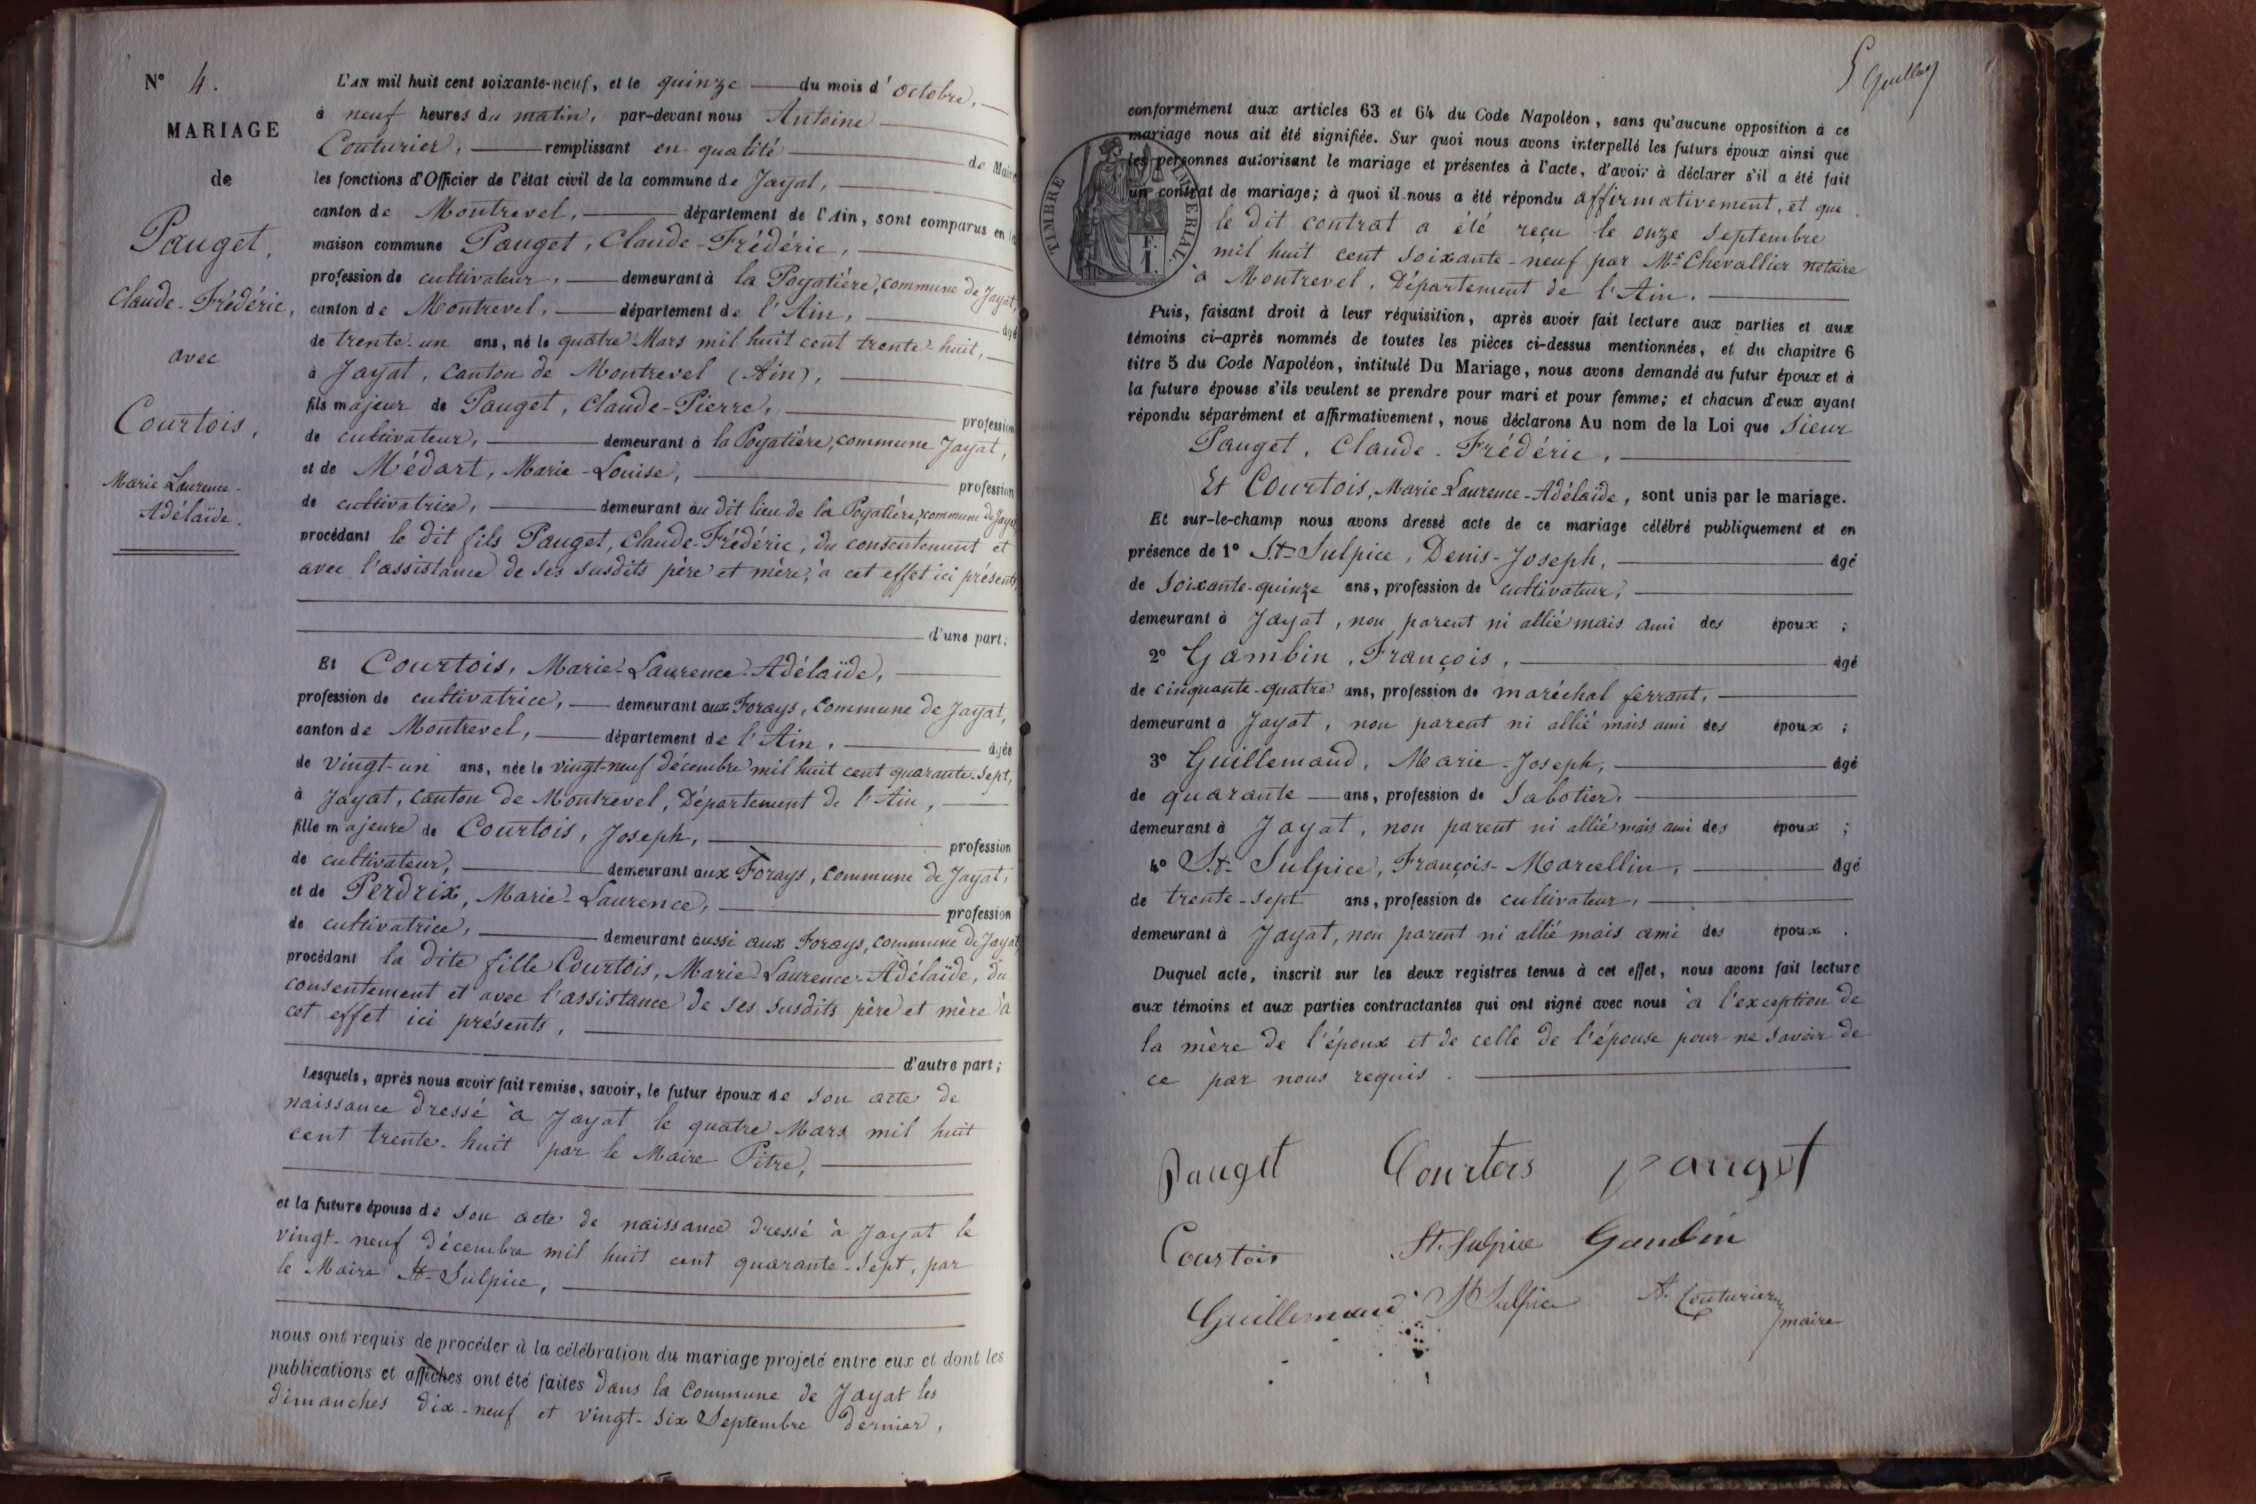 N° 4.
MARIAGE
de
Pauget,
Claude-Frédéric,
avec
Courtois,
Marie Laurence-
Adélaïde.
L'AN mil huit cent soixante-neuf, et le quinze du mois d'octobre,
à neuf heures du matin, par-devant nous Antoine
Couturier, remplissant en qualité de Maire
les fonctions d'Officier de l'état civil de la commune de Jayat,
canton de Montrevel, département de l'Ain, sont comparus en la
maison commune Pauget, Claude-Frédéric,
profession de cultivateur, demeurant à la Poyatière, commune de Jayat,
canton de Montrevel, département de l'Ain, âgé
de trente-un ans, né le quatre Mars mil huit cent trente-huit,
à Jayat, canton de Montrevel (Ain),
fils majeur de Pauget, Claude-Pierre, profession
de cultivateur, demeurant à la Poyatière, commune Jayat,
et de Médart, Marie-Louise, profession
de cultivatrice, demeurant au dit lieu de la Poyatière, commune de Jayat
procédant le dit fils Pauget, Claude-Frédéric, du consentement et
avec l'assistance de ses susdits père et mère, à cet effet ici présents,
d'une part;
Et Courtois, Marie-Laurence-Adélaïde,
profession de cultivatrice, demeurant aux Forays, commune de Jayat,
canton de Montrevel, département de l'Ain, âgée
de vingt-un ans, née le vingt-neuf décembre mil huit cent quarante-sept,
à Jayat, canton de Montrevel, Département de l'Ain,
fille majeure de Courtois, Joseph, profession
de cultivateur, demeurant aux Forays, commune de Jayat,
et de Perdrix, Marie-Laurence, profession
de cultivatrice, demeurant aussi aux Forays, commune de Jayat
procédant la dite fille Courtois, Marie-Laurence-Adélaïde, du
consentement et avec l'assistance de ses susdits père et mère à
cet effet ici présents,
d'autre part;
Lesquels, après nous avoir fait remise, savoir, le futur époux de son acte de
naissance dressé à Jayat le quatre Mars mil huit
cent trente-huit par le Maire Pitre,
et la future épouse de son acte de naissance dressé à Jayat le
vingt-neuf décembre mil huit cent quarante-sept, par
le Maire St-Sulpice,
nous ont requis de procéder à la célébration du mariage projeté entre eux et dont les
publications et affiches ont été faites dans la Commune de Jayat les
dimanches dix-neuf et vingt-six Septembre dernier,
5
conformément aux articles 63 et 64 du Code Napoléon, sans qu'aucune opposition à ce
mariage nous ait été signifiée. Sur quoi nous avons interpellé les futurs époux ainsi que
les personnes autorisant le mariage et présentes à l'acte, d'avoir à déclarer s'il a été fait
un contrat de mariage; à quoi il nous a été répondu affirmativement, et que
le dit contrat a été reçu le onze septembre
mil huit cent soixante-neuf par Me Chevallier notaire
à Montrevel, Département de l'Ain.
TIMBRE IMPÉRIAL.
1 F.
Puis, faisant droit à leur réquisition, après avoir fait lecture aux parties et aux
témoins ci-après nommés de toutes les pièces ci-dessus mentionnées, et du chapitre 6
titre 5 du Code Napoléon, intitulé Du Mariage, nous avons demandé au futur époux et à
la future épouse s'ils veulent se prendre pour mari et pour femme; et chacun d'eux ayant
répondu séparément et affirmativement, nous déclarons Au nom de la Loi que Sieur
Pauget, Claude-Frédéric,
Et Courtois, Marie-Laurence-Adélaïde, sont unis par le mariage.
Et sur-le-champ nous avons dressé acte de ce mariage célébré publiquement et en
présence de 1° St-Sulpice, Denis-Joseph, âgé
de soixante-quinze ans, profession de cultivateur,
demeurant à Jayat, non parent ni allié mais ami des époux ;
2° Gambin, François, âgé
de cinquante-quatre ans, profession de maréchal ferrant,
demeurant à Jayat, non parent ni allié mais ami des époux ;
3° Guillemaud, Marie-Joseph, âgé
de quarante ans, profession de sabotier,
demeurant à Jayat, non parent ni allié mais ami des époux ;
4° St-Sulpice, François-Marcellin, âgé
de trente-sept ans, profession de cultivateur,
demeurant à Jayat, non parent ni allié mais ami des époux .
Duquel acte, inscrit sur les deux registres tenus à cet effet, nous avons fait lecture
aux témoins et aux parties contractantes qui ont signé avec nous à l'exception de
la mère de l'époux et de celle de l'épouse pour ne savoir de
ce par nous requis.
Pauget Courtois pauget
Courtois St. Sulpice Gambin
Guillemaud St Sulpice A. Couturier
maire